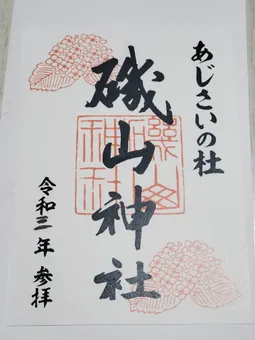 あじさいの杜
磯山神社
令和三年参拝